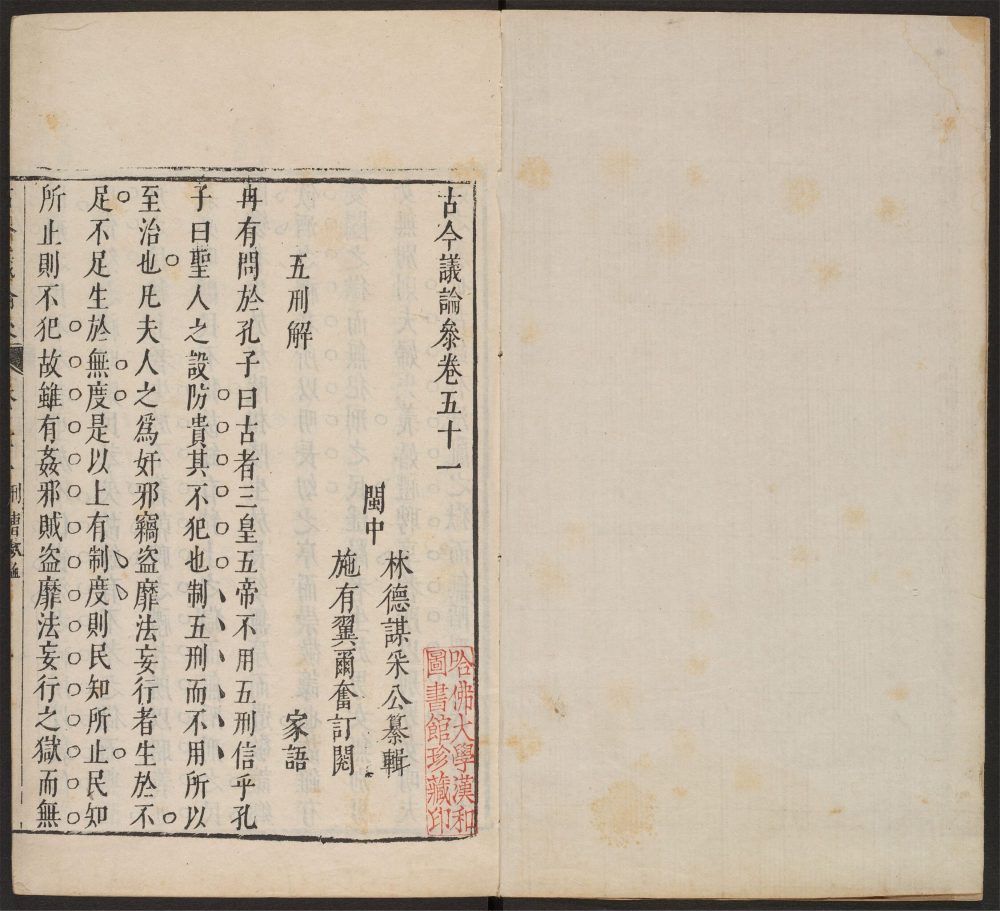 古今議論叅卷五十一
閩中
林德謀采公纂輯
施有翼爾奮訂閱
五刑解
家語
冉有問於孔子曰古者三皇五帝不用五刑信乎孔
子曰聖人之設防貴其不犯也制五刑而不用所以
至治也凡夫人之爲奸邪竊盜靡法妄行者生於不
足不足生於無度是以上有制度則民知所止民知
所止則不犯故雖有姦邪賊盜靡法妄行之獄而無
哈佛大學漢和
圖書館珍藏印